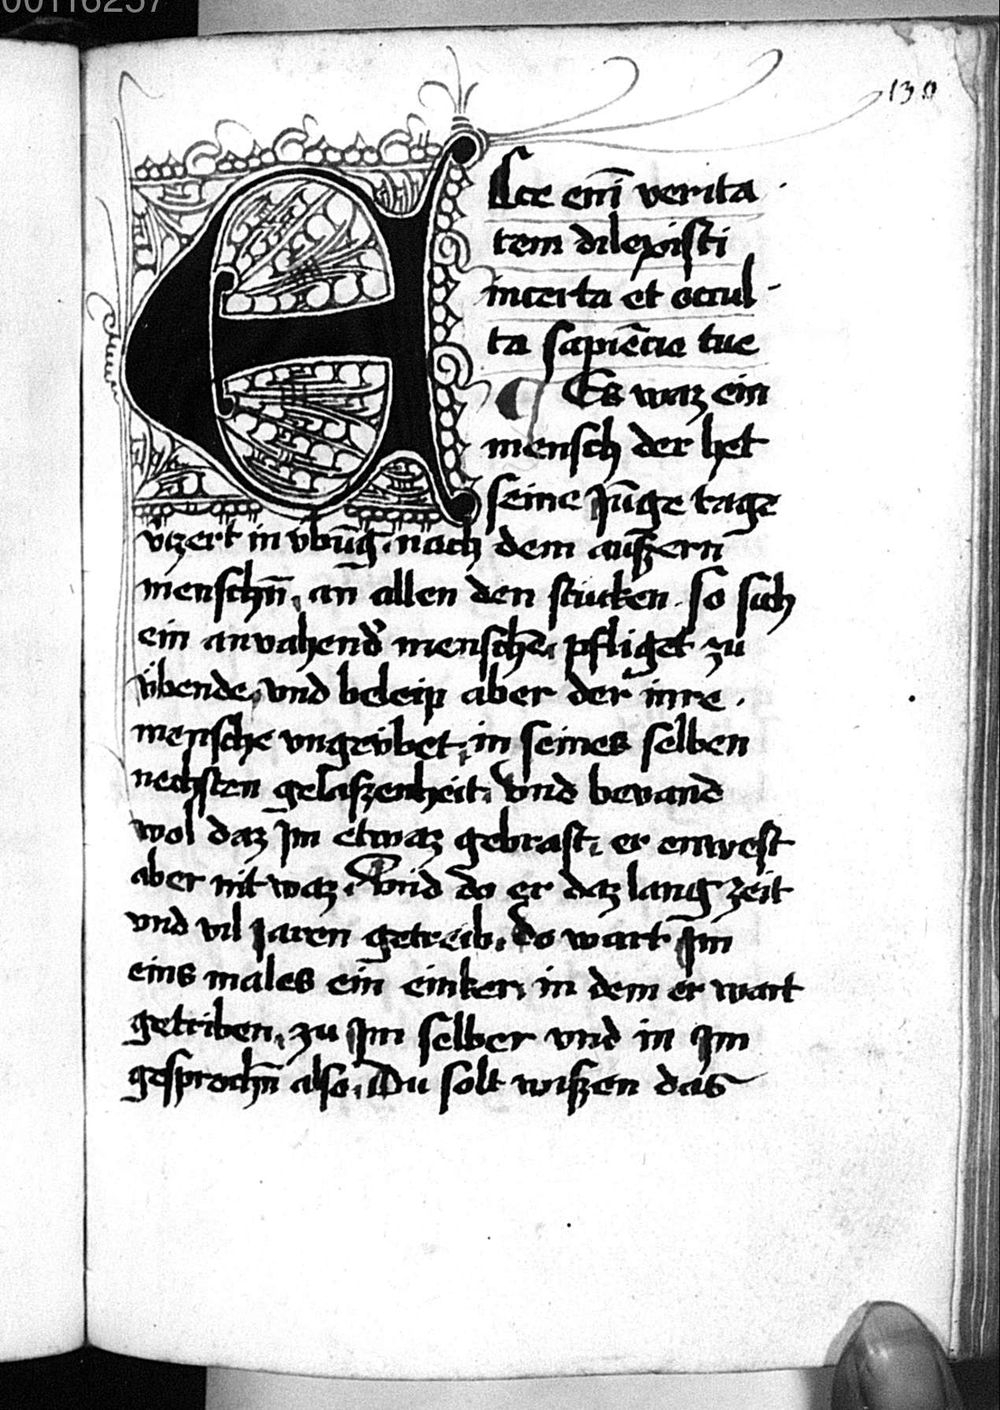 00116237
130
Ecce em̄ verita
tem dilexisti
incerta et occul
ta sapiēcie tue
Es waz ein
mensch der het
seine jūge tage
v̓zert in v̈būg nach dem auszern
menschn̄ an̄ allen den stucken so sich
ein anvahend̓ menschē pfliget zu
v̈bende vnd beleip aber der inre
mensche vngeübet in seines selben
nechsten gelaszenheit Vnd bevand
wol daz Jm etwaz gebrast er enwest
aber nit waz Vnd do er daz lang zeit
vnd vil jaren getreib do wart Jm
eins males ein einker in dem er wart
getriben zu Jm selber vnd in Jm
gesprochn̄ also Du solt wiszen das